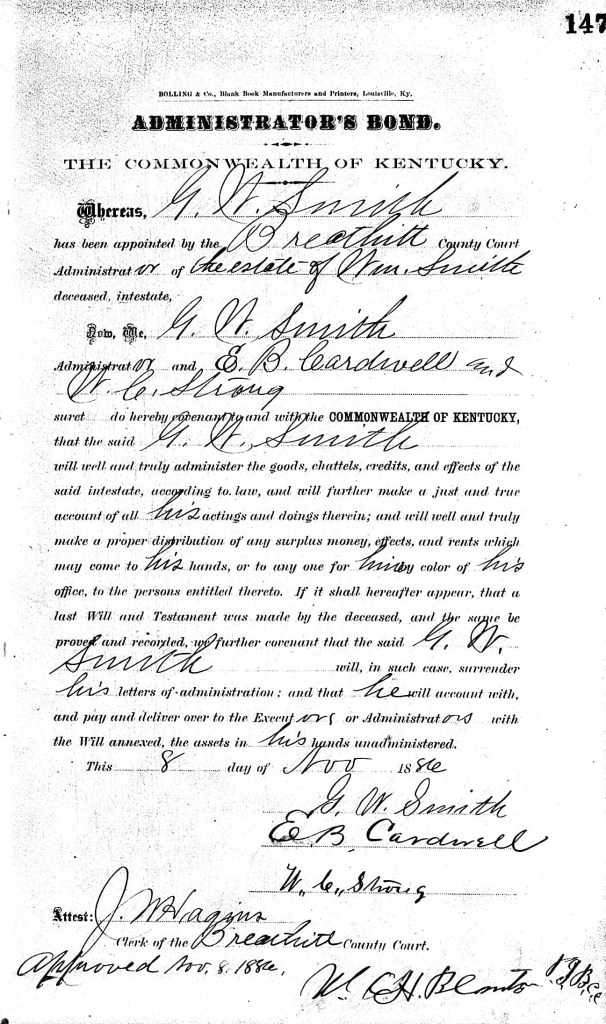 147
BOLLING & Co., Blank Book Manufacturers and Printers, Louisville, Ky.
ADMINISTRATOR'S BOND.
THE COMMONWEALTH OF KENTUCKY.
Whereas, G. W. Smith
has been appointed by the Breathitt County Court
Administrator of the estate of Wm. Smith
deceased, intestate,
Now, We, G. W. Smith
Administrator and E. B. Cardwell and
W. C. Strong
suret do hereby covenant to and with the COMMONWEALTH OF KENTUCKY,
that the said G. W. Smith
will well and truly administer the goods, chattels, credits, and effects of the
said intestate, according to law, and will further make a just and true
account of all his actings and doings therein; and will well and truly
make a proper distribution of any surplus money, effects, and rents which
may come to his hands, or to any one for him by color of his
office, to the persons entitled thereto. If it shall hereafter appear, that a
last Will and Testament was made by the deceased, and the same be
proved and recorded, we further covenant that the said G. W.
Smith will, in such case, surrender
his letters of administration; and that he will account with,
and pay and deliver over to the Executors or Administrators with
the Will annexed, the assets in his hands unadministered.
This 8 day of Nov 1886
G. W. Smith
E. B. Cardwell
W. C. Strong
Attest: J. W Hagins
Clerk of the Breathitt County Court.
Approved Nov. 8, 1886.
H. Blanton